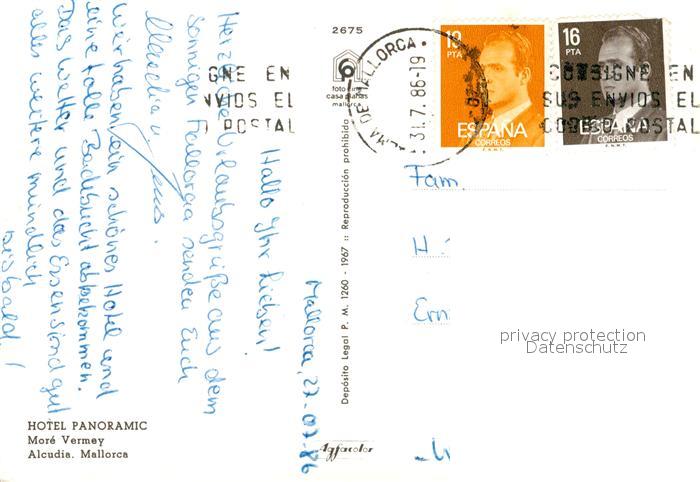 2675
foto cine
casa planas
mallorca
HOTEL PANORAMIC
Moré Vermey
Alcudia. Mallorca
Depósito Legal P. M. 1260 - 1967 :: Reproducción prohibida
Agfacolor
Mallorca, 27-07-86
Hallo Ihr Lieben!
Herzliche Urlaubsgrüße aus dem
sonnigen Mallorca senden Euch
Claudia u. Jens.
Wir haben ein schönes Hotel und
eine tolle Badebucht abbekommen.
Das Wetter und das Essen sind gut
alles weitere mündlich
bis bald!
GNE EN
NVIOS EL
POSTAL
MA DE MALLORCA
31.7.86-19
PTA
ESPAÑA
CORREOS
F.N.M.T.
16
PTA
ESPAÑA
CORREOS
F.N.M.T.
CONSIGNE EN
SUS ENVIOS EL
CODIGO POSTAL
Fam.
H.
Ern
privacy protection
Datenschutz